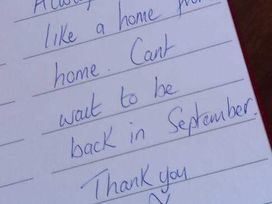 like a home
home. Cant
wait to be
back in September.
Thank you